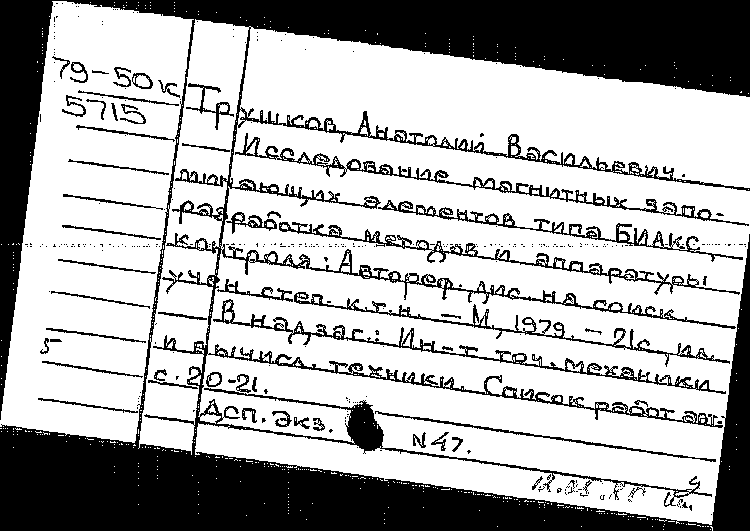 79-50к
5715
Трушков, Анатолий Васильевич.
Исследование магнитных запо-
минающих элементов типа БИАКС,
разработка методов и аппаратуры
контроля: Автореф. дис. на соиск.
учен. степ. к.т.н. – М, 1979. – 21с., ил.
В надзаг.: Ин-т точ. механики
и вычисл. техники. Список работ авт.:
с. 20-21.
Дсп. Экз. N47.
5